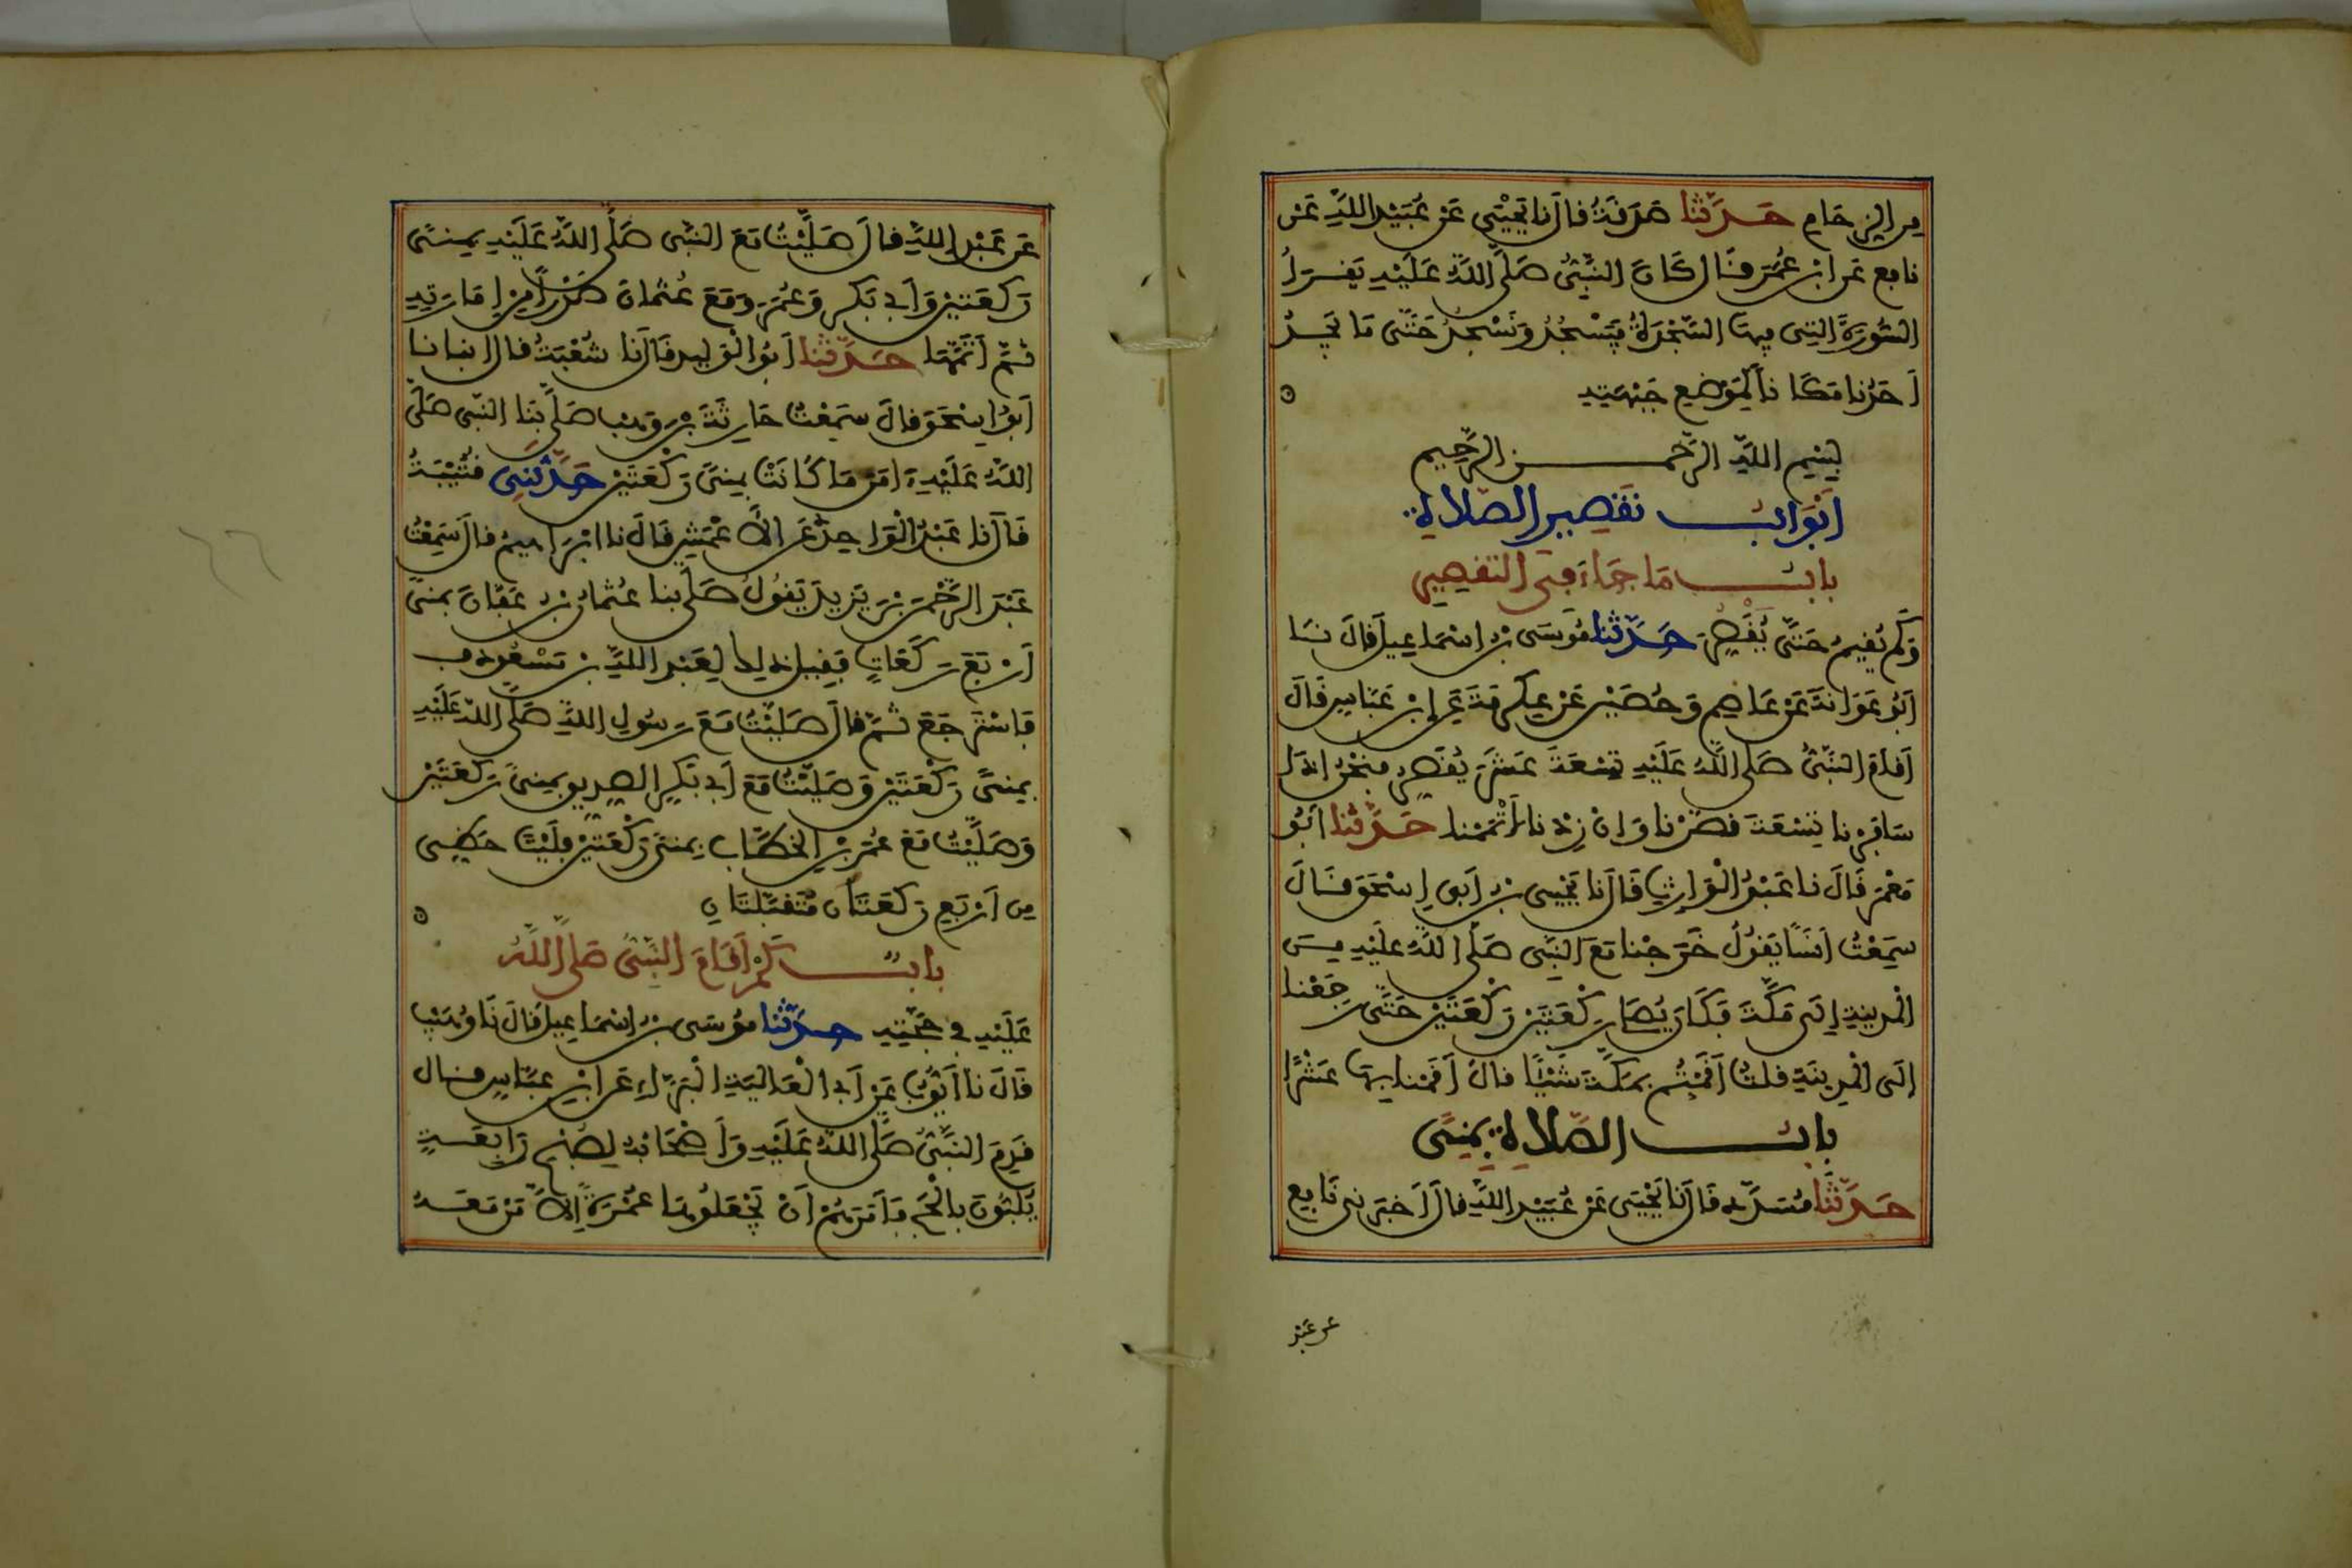 من الزحام حَدَّثَنا صَدَقَةُ قَالَ نا يَحْيَى عَنْ عُبَيْدِ اللَّهِ عَنْ
نافع عَن ابْنِ عُمَرَ قَالَ كَانَ النَّبِيُّ صَلَّى اللَّهُ عَلَيْهِ يَقْرَأُ
السُّورَةَ التِي فِيهَا السَّجْدَةُ فَيَسْجُدُ وَنَسْجُدُ حَتَّى مَا يَجِدُ
أَحَدُنا مَكَاناً لِمَوْضِعِ جَبْهَتِهِ
بِسْمِ اللَّهِ الرَّحْمـــن الرَّحِيمِ
أَبْوَابُ تَقْصِيرِ الصَّلَاةِ
بابُ مَا جَاءَ فِي التَّقْصِيرِ
وَكَمْ يُقِيمُ حَتَّى يُقَصِّرَ حَدَّثَنا مُوسَى بْنُ اسْمَاعِيلَ قَالَ نَا
أَبُو عَوَانَةَ عَنْ عَاصِمٍ وَحُصَيْنٍ عَنْ عِكْرِمَةَ عَنِ ابْنِ عَبَّاسٍ قَالَ
أَقَامَ النَّبِيُّ صَلَّى اللَّهُ عَلَيْهِ تِسْعَةَ عَشَرَ يُقَصِّرُ فَنَحْنُ إِذَا
سَافَرْنا تِسْعَةَ قَصَرْنا وَإِنْ زِدْنا أَتْمَمْنا حَدَّثَنا أَبُو
مَعْمَرٍ قَالَ نا عَبْدُ الْوَارِثِ قَالَ نا يَحْيَى بْنُ أَبِي إِسْحَقَ قَالَ
سَمِعْتُ أَنَسًا يَقُولُ خَرَجْنا مَعَ النَّبِي صَلَّى اللَّهُ عَلَيْهِ مِنَ
الْمَدِينَةِ إِلَى مَكَّةَ فَكَانَ يُصَلِّي رَكْعَتَيْنِ رَكْعَتَيْنِ حَتَّى رَجَعْنا
إِلَى الْمَدِينَةِ قلتُ أَقَمْتُم بِمَكَّةَ شَيْئًا قالَ أَقَمْنا بِهَا عَشْرًا
بابُ الصَّلَاةِ بِمِنًى
حَدَّثَنَا مُسَدَّدٌ قَالَ نا يَحْيَى عَنْ عُبَيْدِ اللَّهِ قالَ أَخْبَرَنِي نَافِع
عن عَبْد
عَن عَبْدِ اللَّهِ قالَ صَلَّيْتُ مَعَ النَّبِّي صَلَّى اللَّهُ عَلَيْهِ بِمِنًى
رَكْعَتَيْنِ وَأَبِي بَكْرٍ وَعُمَرَ وَمَعَ عُثْمَانَ صَدْرًا مِنْ إِمَارَتِهِ
ثُمَّ أَتَمَّهَا حَدَّثَنا أَبُو الْوَلِيدِ قَالَ نَا شُعْبَةُ قال انبانا
أَبُو إِسْحَقَ قالَ سَمِعْتُ حَارِثَةَ بْنَ وَهْب صَلَّى بِنَا النَّبِي صَلَّى
اللَّهُ عَلَيْهِ ءَامَنَ مَا كَانَتْ بِمِنًى رَكْعَتَيْنِ حَدَّثَنِي قُتَيْبَةُ
قَالَ نا عَبْدُ الْوَاحِدِ عَنِ الأَعْمَشِ قَالَ نا ابْرَاهِيمُ قالَ سَمِعْتُ
عَبْدَ الرَّحْمَنِ بْنَ يَزِيدَ يَقُولُ صَلَّى بنا عُثْمَانُ بْنُ عَفَّانَ بمنًى
أَرْبَعَ رَكَعَاتٍ فَقِيلَ ذلِكَ لِعَبْدِ اللَّهِ بْنِ مَسْعُودٍ
فَاسْتَرْجَعَ ثُمَّ قالَ صَلَّيْتُ مَعَ رَسُولِ اللَّهِ صَلَّى اللَّهُ عَلَيْهِ
بِمِنًى رَكْعَتَيْنِ وَصَلَّيْتُ مَعَ أَبِي بَكْرٍ الصِّدِّيقِ بِمِنًى رَكْعَتَيْنِ
وَصَلَّيْتُ مَعَ عُمَرَ بْنِ الْخَطَّابِ بِمِنًى رَكْعَتَيْنِ فَلَيْتَ حَظِّي
مِن أَرْبَعِ رَكَعَتَانِ مُتَقَبَّلَتَانِ
بابُ كَمْ أَقَامَ النَّبِيُّ صَلَّى اللَّهُ
عَلَيْهِ فِي حَجَّتِهِ حَدَّثَنا مُوسَى بْنُ إِسْمَاعِيلَ قَالَ نَا وُهَيْبٌ
قَالَ نا أَيُّوبُ عَنْ أَبِي الْعَالِيَةِ الْبَرَّاءِ عَنِ ابْنِ عَبَّاسٍ قَالَ
قَدِمَ النَّبِيُّ صَلَّى اللَّهُ عَلَيْهِ وَأَصْحَابُهُ لِصُبْحِ رَابِعَةٍ
يُلَبُّونَ بِالْحَجِّ فَأَمَرَهُمْ أَنْ يَجْعَلُوهَا عُمْرَةً إِلَّا مَنْ مَعَهُ